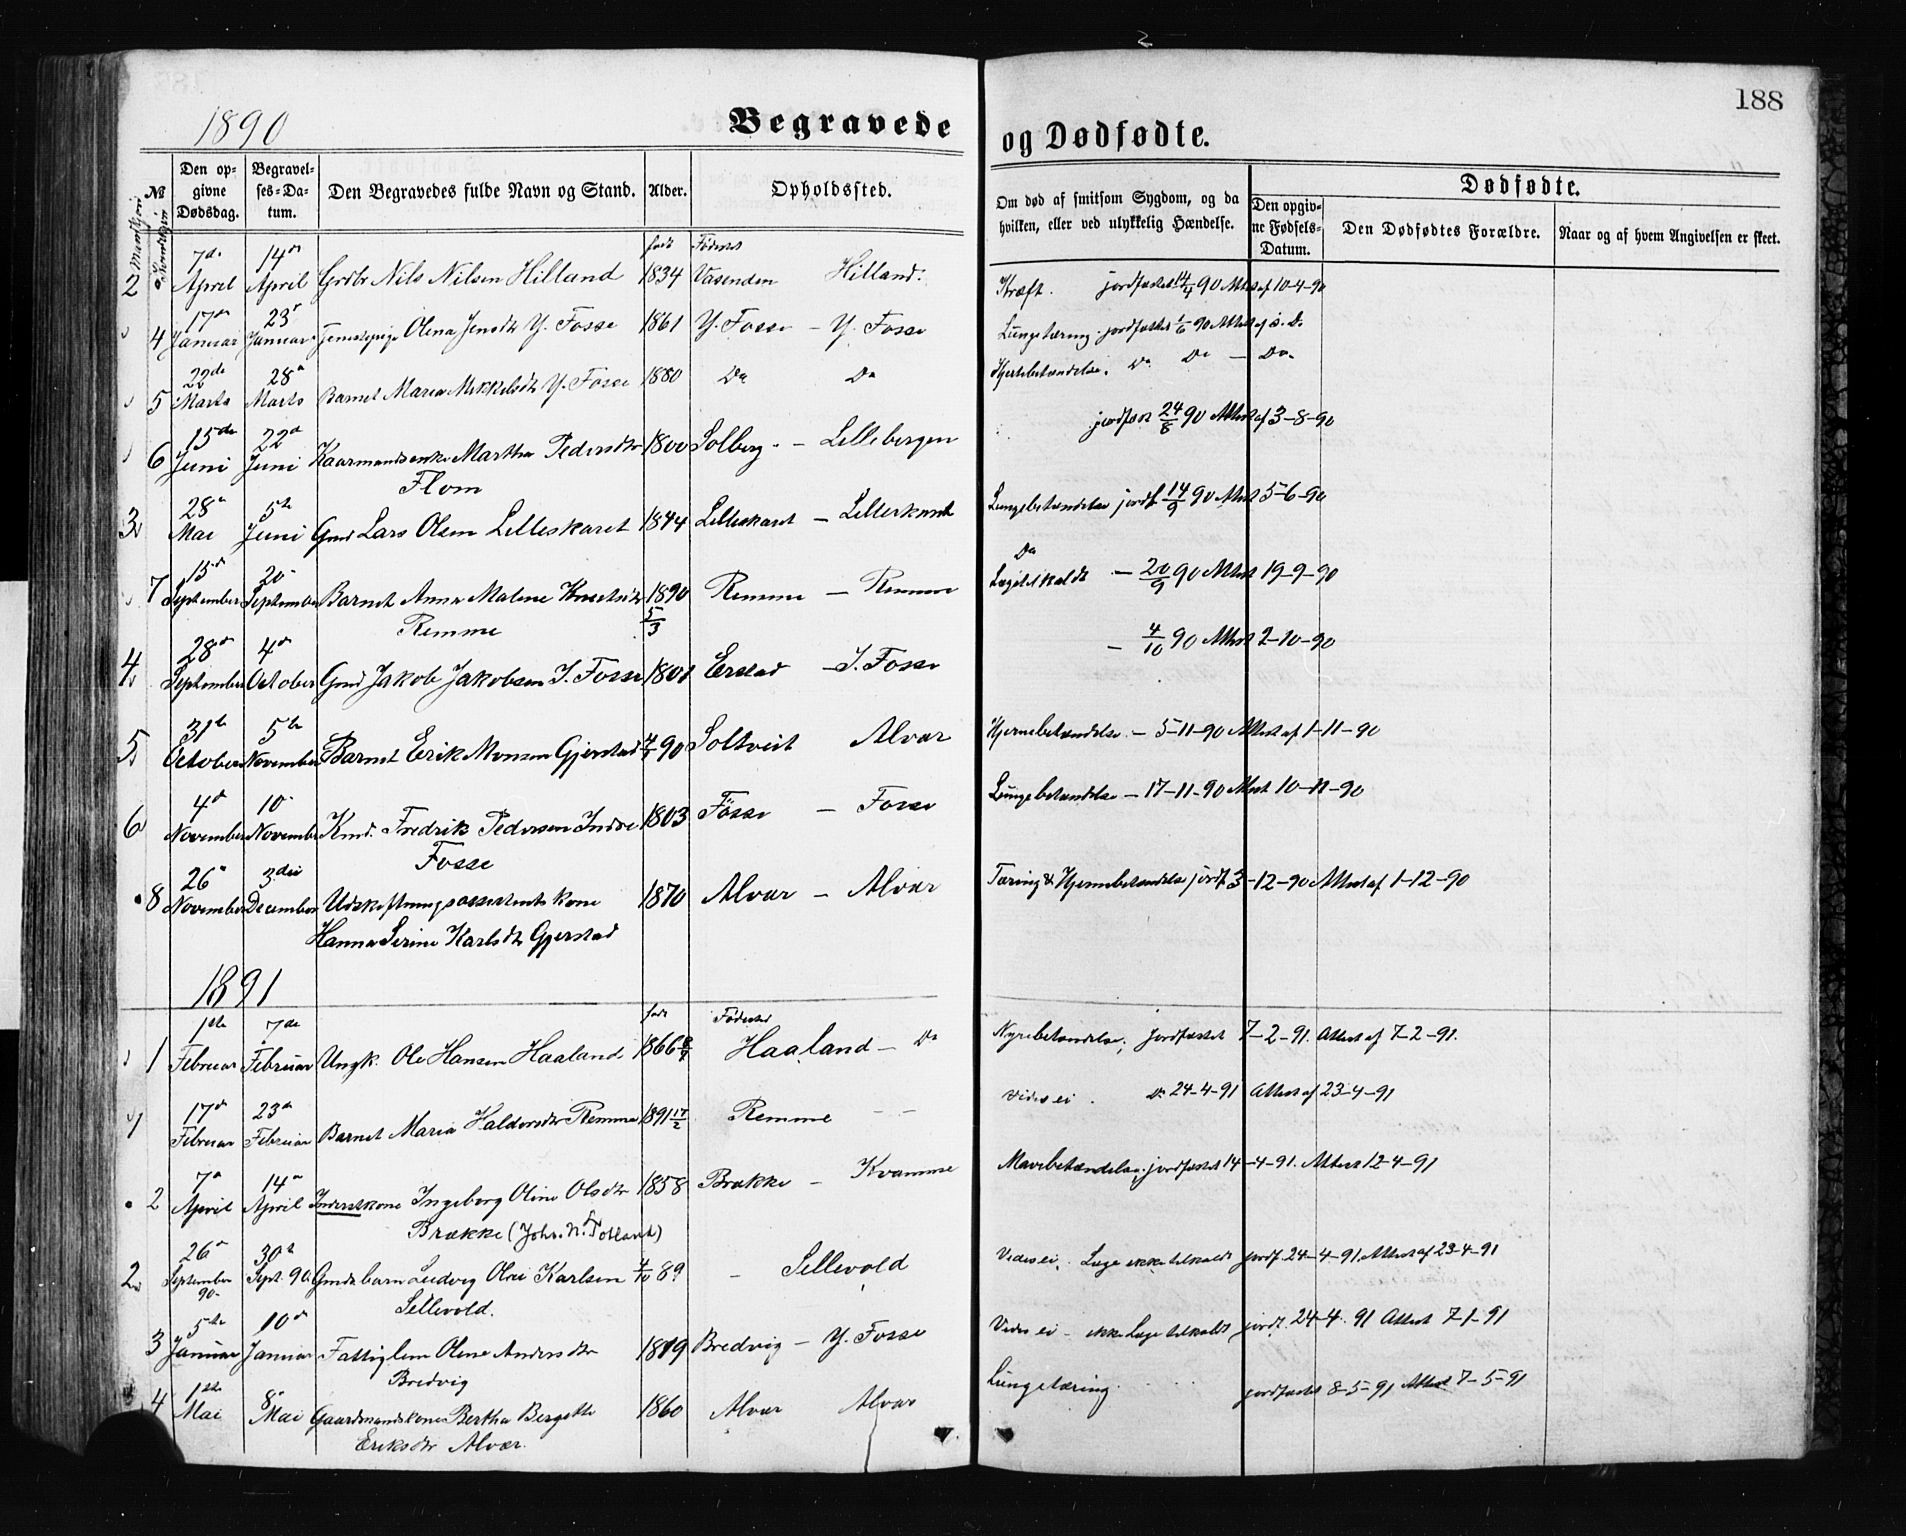 188
1890
Begravede
og Dødfødte.
Mandkjøn
Kvindekjøn
№
Den op-
givne
Dødsdag.
Begravel-
ses-Da-
tum.
Den Begravedes fulde Navn og Stand.
Alder.
Opholdssted.
Om død af smitsom Sygdom, og da
hvilken, eller ved ulykkelig Hændelse.
Dødfødte.
Den opgiv-
ne Fødsels-
Datum.
Den Dødfødtes Forældre.
Naar og af hvem Angivelsen er skeet.
født Fødested
2 7de April 14de April Nils Nilsen Hilland 1834 Vasenden Hilland. Kræft. jordfæstet 14/4 90 Attest af 10-4-90
4 17de Januar 23de Januar Tjenestepige Olena Jensdtr Y. Fosse 1861 Y. Fosse – Y. Fosse Lungetæring jordfæstet 1/6 90 Attest af s. D.
5 22de Marts 28de Marts Barnet Maria Mikkelsdtr Y. Fosse 1880 Do Do Hjertebetændelse. Do Do – Do
6 15de Juni 22de Juni Kaarmandsenke Martha Pedersdtr 1800 Solberg – Lillebergen jordfæst 24/8 90 Attest af 3-8-90
Flom
3 28de Mai 5te Juni Gmd Lars Olsen Lilleskaret 1844 Lilleskaret – Lilleskaret Lungebetændelse jordf. 14/9 90 Attest 5-6-90
7 15de September 20 September Barnet Anna Malene Knutsdtr 1890 5/3 Remme – Remme Do Lægetilkaldt – 20/9 90 Attest 19-9-90
Remme
4 28de September 4de October Gmd Jakob Jakobsen I. Fosse 1801 Erstad – I. Fosse – 4/10 90 Attest 2-10-90
5 31te October 5te November Barnet Erik Monsen Gjerstad 90 Soltveit Alvær Hjernebetændelse – 5-11-90 Attest af 1-11-90
6 4de November 10 November Kmd. Fredrik Pedersen Indre 1803 Fosse – Fosse Lungebetændelse – 17-11-90 Attest 10-11-90
Fosse
8 26de November 3die December Udskiftningsassistents kone 1870 Alvær – Alvær Tæring & Hjernebetændelse jordf. 3-12-90 Attest af 1-12-90
Hanna Serine Karlsdtr Gjerstad
1891
født Fødested
1 1ste Februar 7de Februar Ungk. Ole Hansen Haaland 1866 Haaland – Do Nyrebetændelse; Jordfæstet 7-2-91. Attest af 7-2-91.
1 17de Februar 23de Februar Barnet Maria Haldorsdtr Remme 1891 17/2 Remme – – Vides ei. Do 24-4-91 Attest af 23-4-91
2 7de April 14de April Inderstkone Ingeborg Oline Olsdtr 1858 Brække – Kvamme Mavebetændelse; jordfæstet 14-4-91. Attest 12-4-91
Brække (Johs. N. Totland)
2. 26de September 90 30te Sept. 90. Gmds barn Ludvig Olai Karlsen 89 – Sellevold Vides ei. Læge ikke tilkaldt jordf. 24-4-91 Attest af 23-4-91
Sellevold.
3 5te Januar 10de Januar Fattiglem Olene Andersdtr 1819 Bredvig – Y. Fosse Vides ei – ikke Læge tilkaldt, jordf. 24-4-91 Attest 7-1-91
Bredvig
4 1ste Mai 8de Mai Gaardmandskone Bertha Bergette 1860 Alvær Alvær Lungetæring. jordfæstet 8-5-91 Attest 7-5-91
Eriksdtr Alvær.